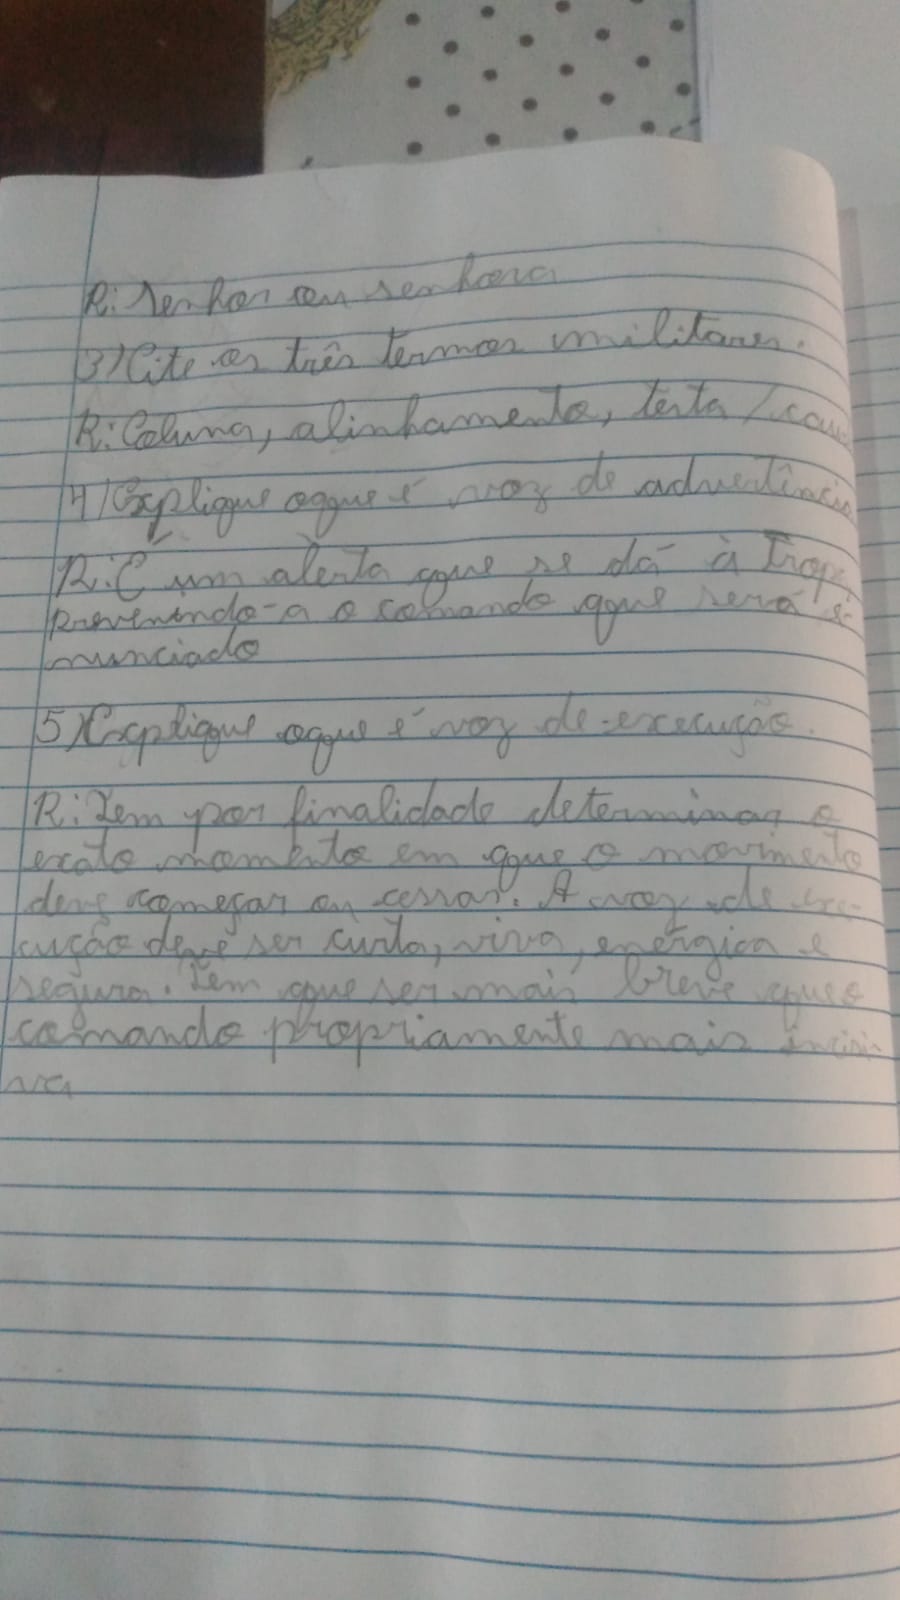 R: Senhor ou senhora
3) Cite os três termos militares.
R: Coluna, alinhamento, testa /
4) Explique oque é voz de advertência
R: É um alerta que se dá à tropa,
prevenindo-a o comando que será e-
nunciado
5) Explique oque é voz de execução.
R: Tem por finalidade determinar o
exato momento em que o movimento
deve começar ou cessar. A voz de exe-
cução deve ser curta, viva, enérgica e
segura. Tem que ser mais breve que o
comando propriamente mais incisi-
va